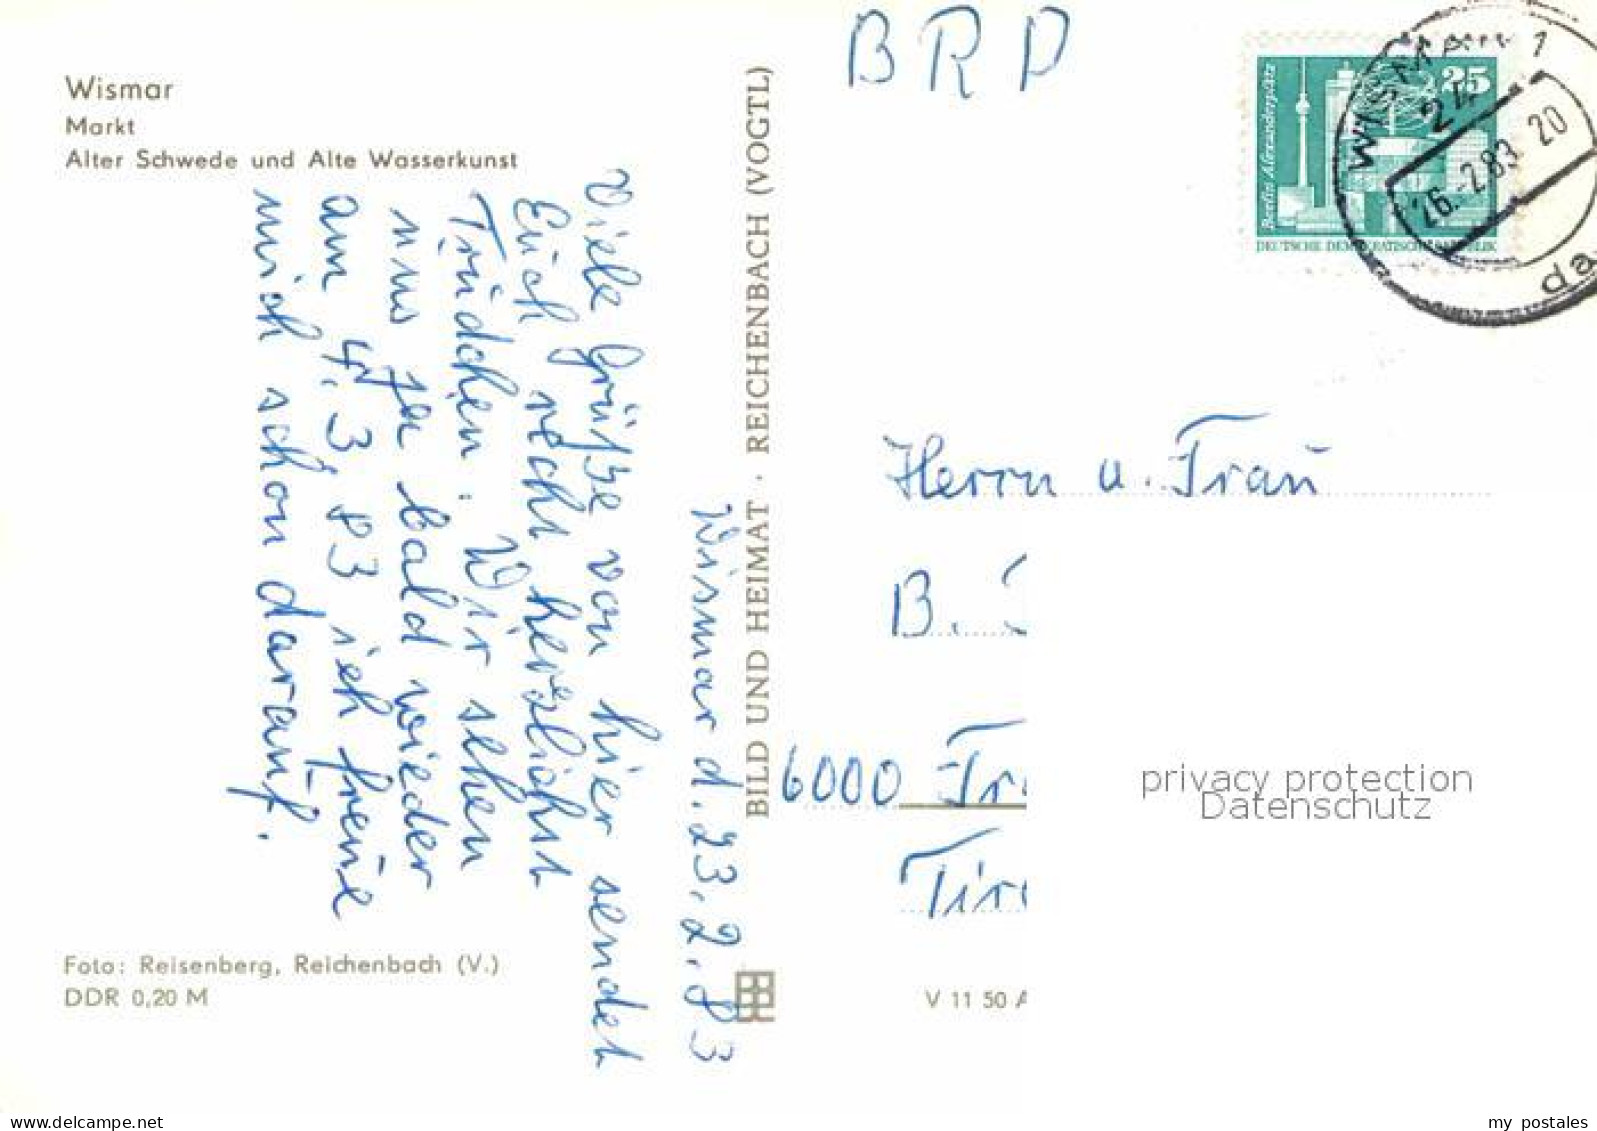 Wismar
Markt
Alter Schwede und Alte Wasserkunst
Wismar d. 23.2.83
Viele Grüße von hier sendet
Euch recht herzlichst
Trudchen. Wir sehen
uns ja bald wieder
am 4.3.83 ich freue
mich schon darauf.
Foto: Reisenberg, Reichenbach (V.)
DDR 0,20 M
BILD UND HEIMAT · REICHENBACH (VOGTL)
BRD
Berlin Alexanderplatz
25
DEUTSCHE DEMOKRATISCHE REPUBLIK
WISMAR 1
24
26.-2.83. 20
da
Herrn u. Frau
B.
6000 Fr
Tir
V 11 50 A
privacy protection
Datenschutz
delcampe.net
my postales